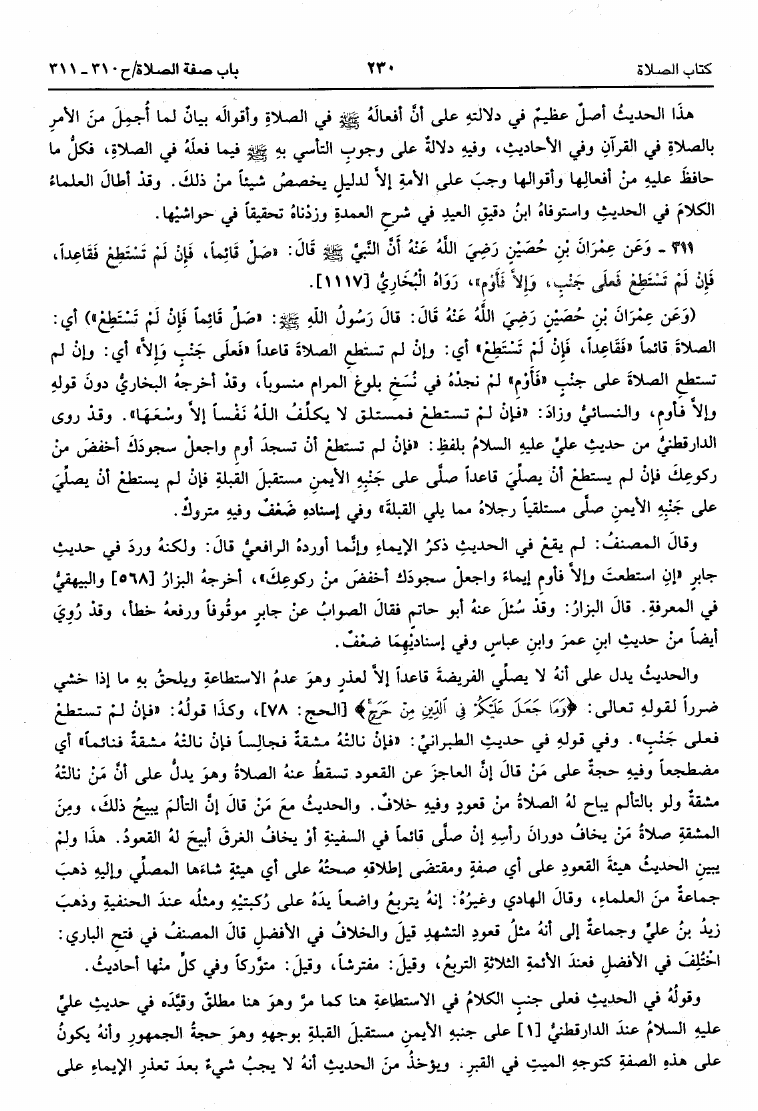 كتاب الصلاة ٢٣٠ باب صفة الصلاة/ح ٣١٠ ـ ٣١١
هذَا الحديثُ أصلٌ عظيمٌ في دلالتهِ على أنَّ أفعالَهُ ﷺ في الصلاةِ وأقوالَه بيانٌ لما أُجمِلَ منَ الأمرِ
بالصلاةِ في القرآنِ وفي الأحاديثِ، وفيهِ دلالةٌ على وجوبِ التأسي بهِ ﷺ فيما فعلَهُ في الصلاةِ، فكلُّ ما
حافظَ عليهِ منْ أفعالِها وأقوالها وجبَ على الأمةِ إلاَّ لدليلٍ يخصصُ شيئاً منْ ذلكَ. وقدْ أطالَ العلماءُ
الكلامَ في الحديثِ واستوفاهُ ابنُ دقيقِ العيدِ في شرحِ العمدةِ وزدْناهُ تحقيقاً في حواشيْها.
٣١١ ـ وَعَن عِمْرَانَ بْنِ حُصَيْنٍ رَضِيَ اللَّهُ عَنْهُ أَنَّ النَّبِيَّ ﷺ قَالَ: «صَلِّ قَائِماً، فَإِنْ لَمْ تَسْتَطِعْ فَقَاعِداً،
فَإِنْ لَمْ تَسْتَطِعْ فَعلَى جَنْبٍ، وَإِلاَّ فَأَوْمِ»، رَوَاهُ الْبُخَارِيُّ [١١١٧].
(وَعَن عِمْرَانَ بْنِ حُصَيْنٍ رَضِيَ اللَّهُ عَنْهُ قَالَ: قَالَ رَسُولُ اللَّهِ ﷺ: «صَلِّ قَائِماً فَإِنْ لَمْ تَسْتَطِعْ») أي:
الصلاةَ قائماً «فَقَاعِداً، فَإِنْ لَمْ تَسْتَطِعْ» أي: وإنْ لم تستطعِ الصلاةَ قاعداً «فَعلَى جَنْبٍ وَإِلاَّ» أي: وإنْ لم
تستطعِ الصلاةَ على جنْبٍ «فَأَوْمِ» لم نجدْهُ في نُسَخِ بلوغِ المرامِ منسوباً، وقدْ أخرجهُ البخاريُّ دونَ قولهِ
وإلاَّ فأومِ، والنسائيُّ وزادَ: «فإنْ لمْ تستطعْ فمستلقٍ لا يكلِّفُ اللَّهُ نَفْساً إلاَّ وسْعَهَا». وقدْ روى
الدارقطنيُّ من حديثِ عليٍّ عليهِ السلامُ بلفظِ: «فإنْ لم تستطعْ أنْ تسجدَ أومِ واجعلْ سجودَكَ أخفضَ منْ
ركوعِكَ فإنْ لم يستطعْ أنْ يصلِّيَ قاعداً صلَّى على جَنْبِهِ الأيمنِ مستقبلَ القبلةِ فإنْ لم يستطعْ أنْ يصلِّيَ
على جَنْبِهِ الأيمنِ صلَّى مستلقياً رجلاهُ مما يلي القبلةَ» وفي إسنادهِ ضَعْفٌ وفيهِ متروكٌ.
وقالَ المصنفُ: لم يقعْ في الحديثِ ذكرُ الإيماءِ وإنَّما أوردهُ الرافعيُّ قالَ: ولكنهُ وردَ في حديثِ
جابرٍ «إنِ استطعتَ وإلاَّ فأومِ إيماءً واجعلْ سجودَك أخفضَ منْ ركوعِكَ»، أخرجهُ البزارُ [٥٦٨] والبيهقيُّ
في المعرفةِ. قالَ البزارُ: وقدْ سُئلَ عنهُ أبو حاتمٍ فقالَ الصوابُ عنْ جابرٍ موقُوفاً ورفعهُ خطأ، وقدْ رُوِيَ
أيضاً منْ حديثِ ابنِ عمرَ وابنِ عباسٍ وفي إسناديْهِمَا ضعْفٌ.
والحديثُ يدل على أنهُ لا يصلِّي الفريضةَ قاعداً إلاَّ لعذرٍ وهوَ عدمُ الاستطاعةِ ويلحقُ بهِ ما إذا خشي
ضرراً لقولهِ تعالى: ﴿وَمَا جَعَلَ عَلَيْكُمْ فِي ٱلدِّينِ مِنْ حَرَجٍ﴾ [الحج: ٧٨]، وكذَا قولُهُ: «فإنْ لمْ تستطعْ
فعلى جَنْبٍ». وفي قولهِ في حديثِ الطبرانيِّ: «فإنْ نالتْهُ مشقةٌ فجالِساً فإنْ نالتْهُ مشقةٌ فنائماً» أي
مضطجعاً وفيهِ حجةٌ على مَنْ قالَ إنَّ العاجزَ عن القعودِ تسقطُ عنهُ الصلاةُ وهوَ يدلُّ على أنَّ مَنْ نالتْهُ
مشقةٌ ولو بالتألم يباح لهُ الصلاةُ منْ قعودٍ وفيهِ خلافٌ. والحديثُ معَ مَنْ قالَ إنَّ التألمَ يبيحُ ذلكَ، ومِنَ
المشقةِ صلاةُ مَنْ يخافُ دورانَ رأسِهِ إنْ صلَّى قائماً في السفينةِ أوْ يخافُ الغرقَ أبيحَ لهُ القعودُ. هذَا ولمْ
يبينِ الحديثُ هيئةَ القعودِ على أي صفةٍ ومقتضَى إطلاقهِ صحتُهُ على أي هيئةٍ شاءَها المصلِّي وإليهِ ذهبَ
جماعةٌ منَ العلماءِ، وقالَ الهادي وغيرُهُ: إنهُ يتربعُ واضعاً يدَهُ على رُكبتَيْهِ ومثلُه عندَ الحنفيةِ وذهبَ
زيدُ بنُ عليٍّ وجماعةٌ إلى أنهُ مثلُ قعودِ التشهدِ قيلَ والخلافُ في الأفضلِ قالَ المصنفُ في فتحِ الباري:
اخْتُلِفَ في الأفضلِ فعندَ الأئمةِ الثلاثةِ التربعُ، وقيلَ: مفترشاً، وقيلَ: متوَّركاً وفي كلٍّ منْها أحاديثُ.
وقولُهُ في الحديثِ فعلى جنبٍ الكلامُ في الاستطاعةِ هنا كما مرَّ وهوَ هنا مطلقٌ وقيَّدَه في حديثِ عليٍّ
عليهِ السلامُ عندَ الدارقطنيِّ [١] على جنبِهِ الأيمنِ مستقبلَ القبلةِ بوجههِ وهوَ حجةُ الجمهورِ وأنهُ يكونُ
على هذهِ الصفةِ كتوجهِ الميتِ في القبرِ. ويؤخذُ منَ الحديثِ أنهُ لا يجبُ شيءٌ بعدَ تعذرِ الإيماءِ على